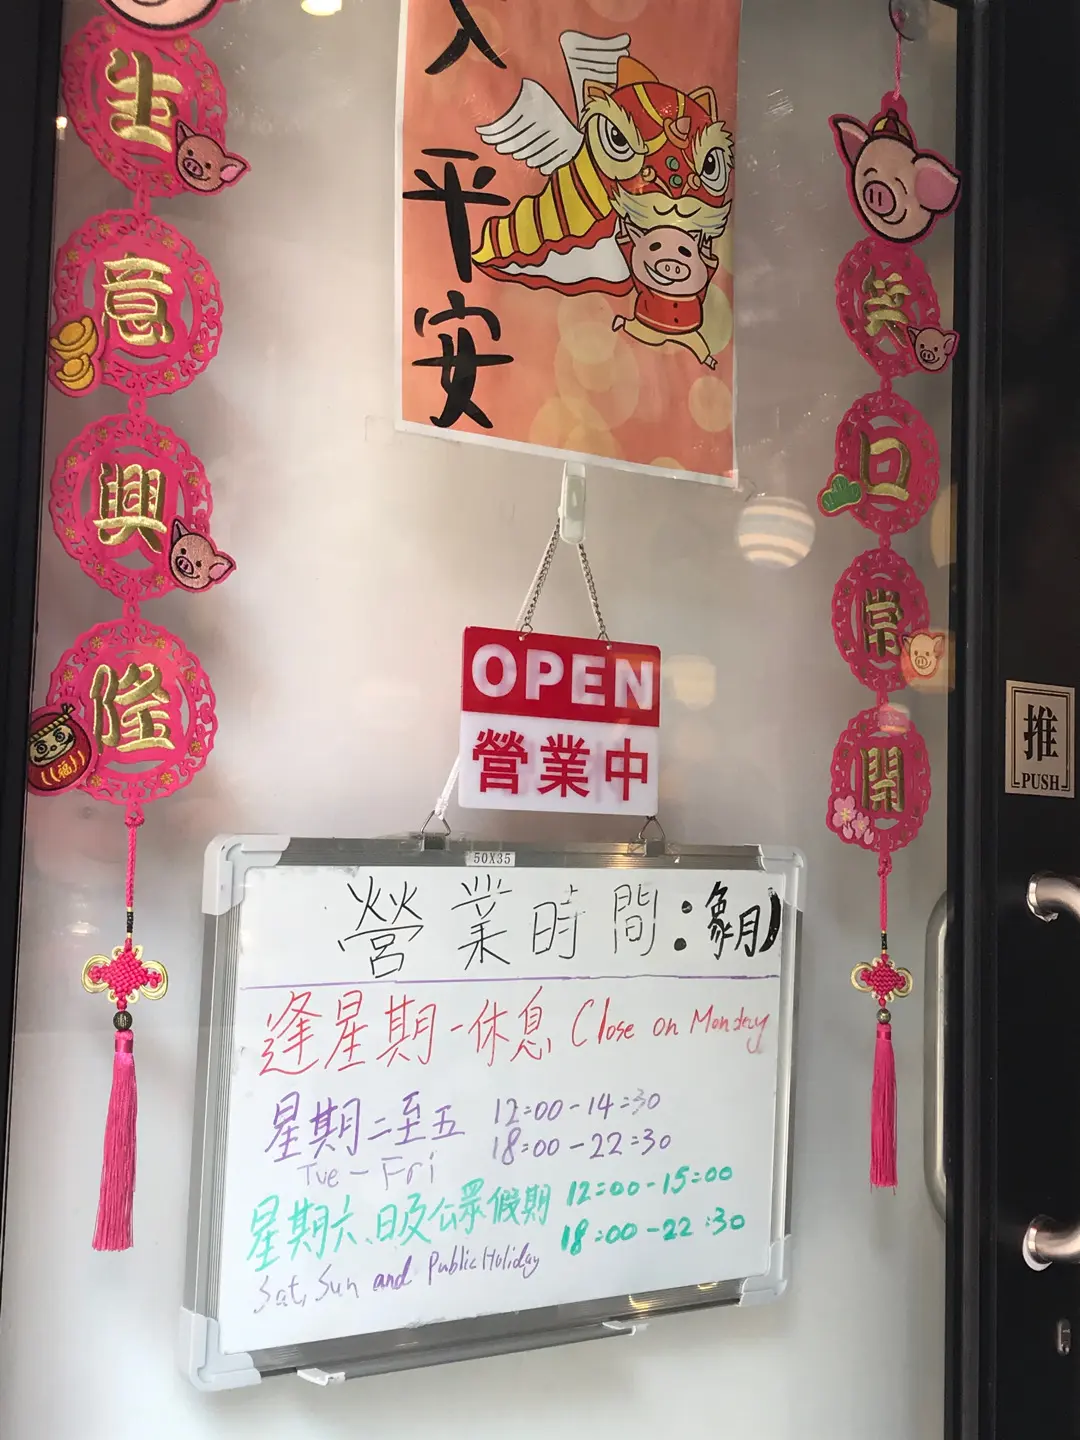 生意興隆
入平安
笑口常開
OPEN
營業中
推
PUSH
50X35
營業時間:
逢星期一休息 Close on Monday
星期二至五 12:00-14:30
Tue - Fri 18:00-22:30
星期六、日及公眾假期 12:00-15:00
Sat, Sun and Public Holiday 18:00-22:30
福